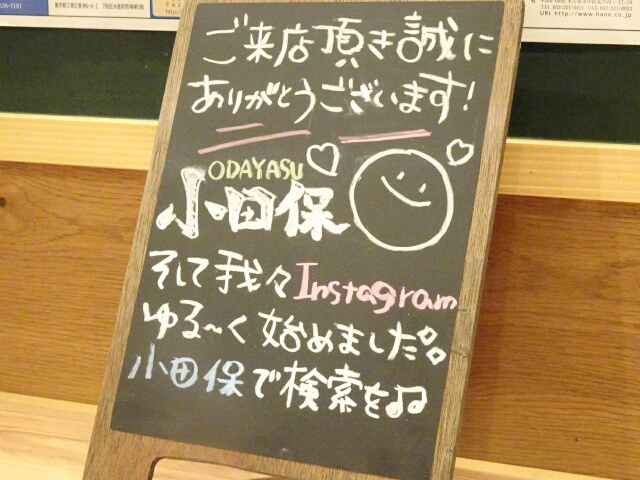 ご来店頂き誠に
ありがとうございます!
ODAYASU
小田保
そして我々Instagram
ゆる〜く始めました
小田保で検索を♫
URL http://www.hane.co.jp